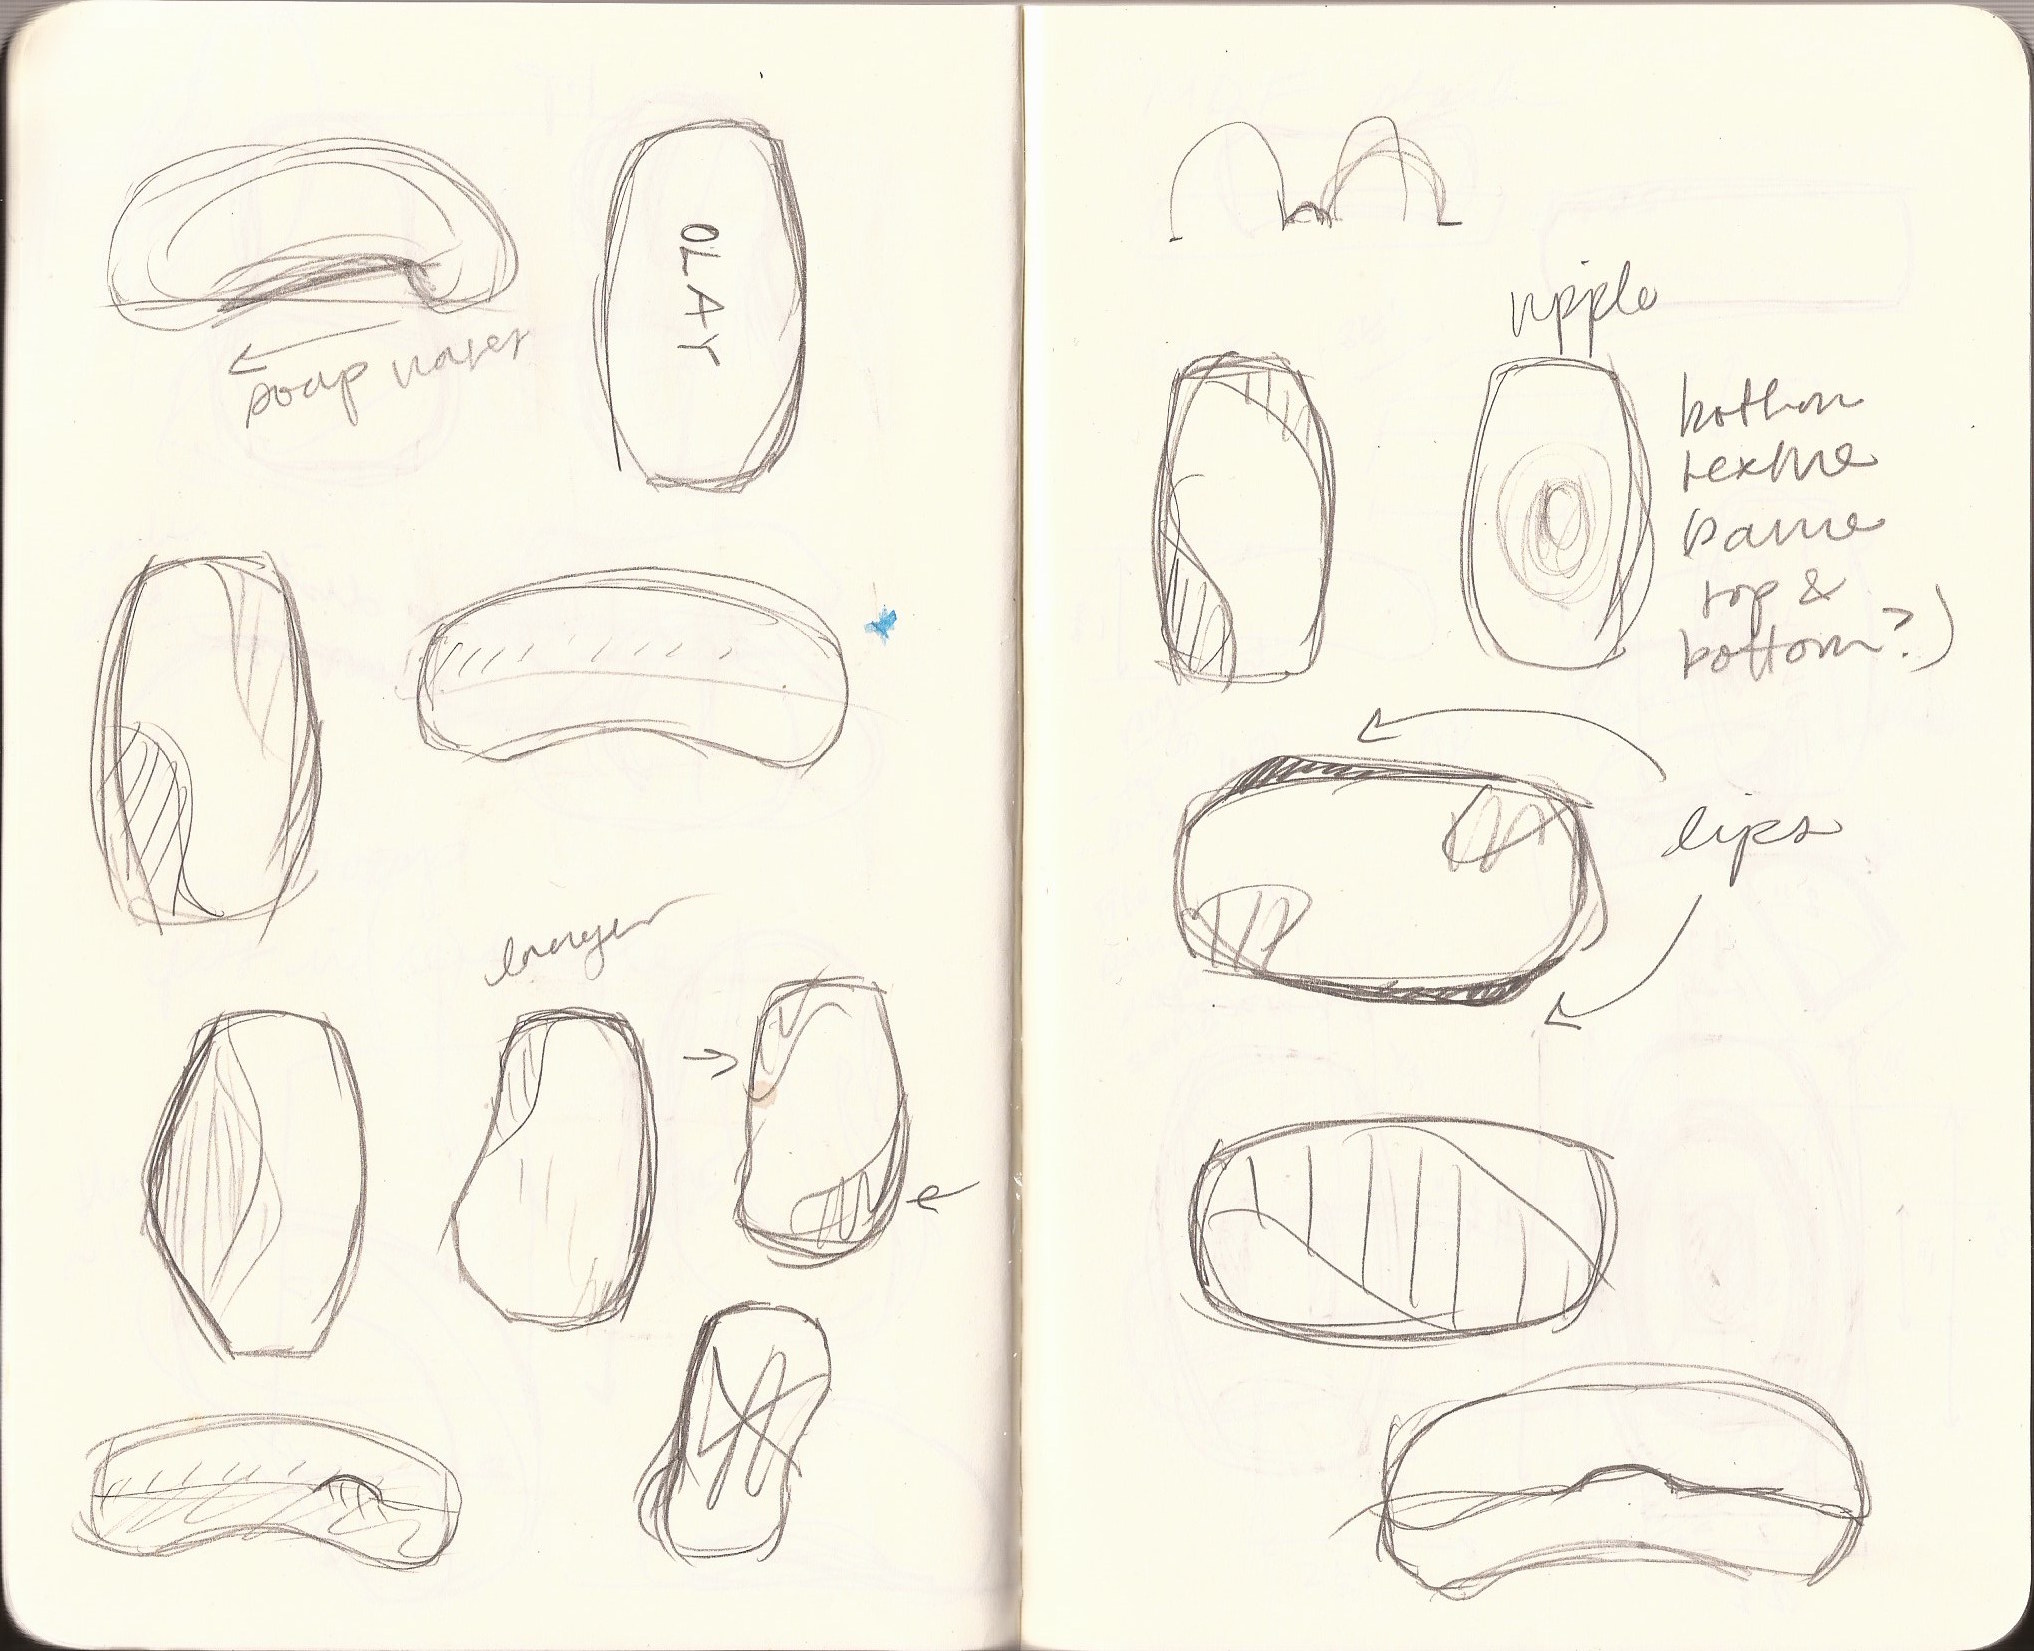 OLAY
soap
ripple
bottom
texture
same
top &
bottom?)
lips